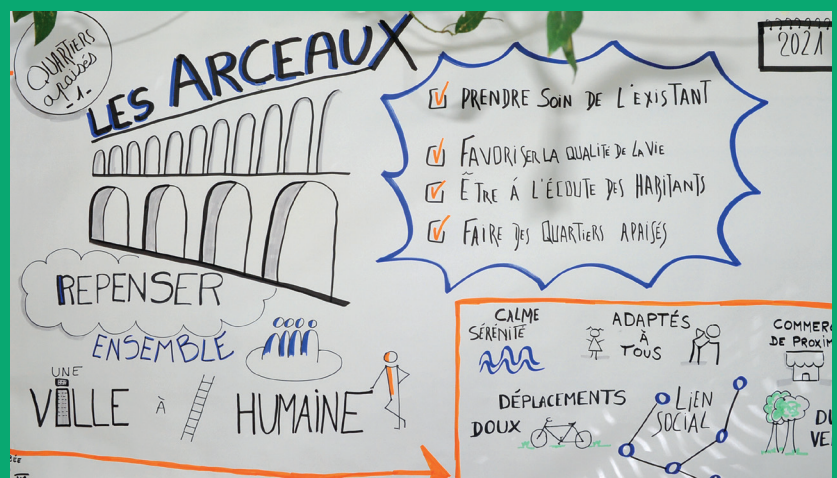 QUARTIERS
apaisés
-1-
LES ARCEAUX
2021
PRENDRE SOIN DE L'EXISTANT
FAVORISER LA QUALITÉ DE LA VIE
ÊTRE À L'ÉCOUTE DES HABITANTS
FAIRE DES QUARTIERS APAISÉS
REPENSER
ENSEMBLE
UNE
VILLE À HUMAINE
CALME
SÉRÉNITÉ
ADAPTÉS
À
TOUS
DÉPLACEMENTS
DOUX
LIEN
SOCIAL